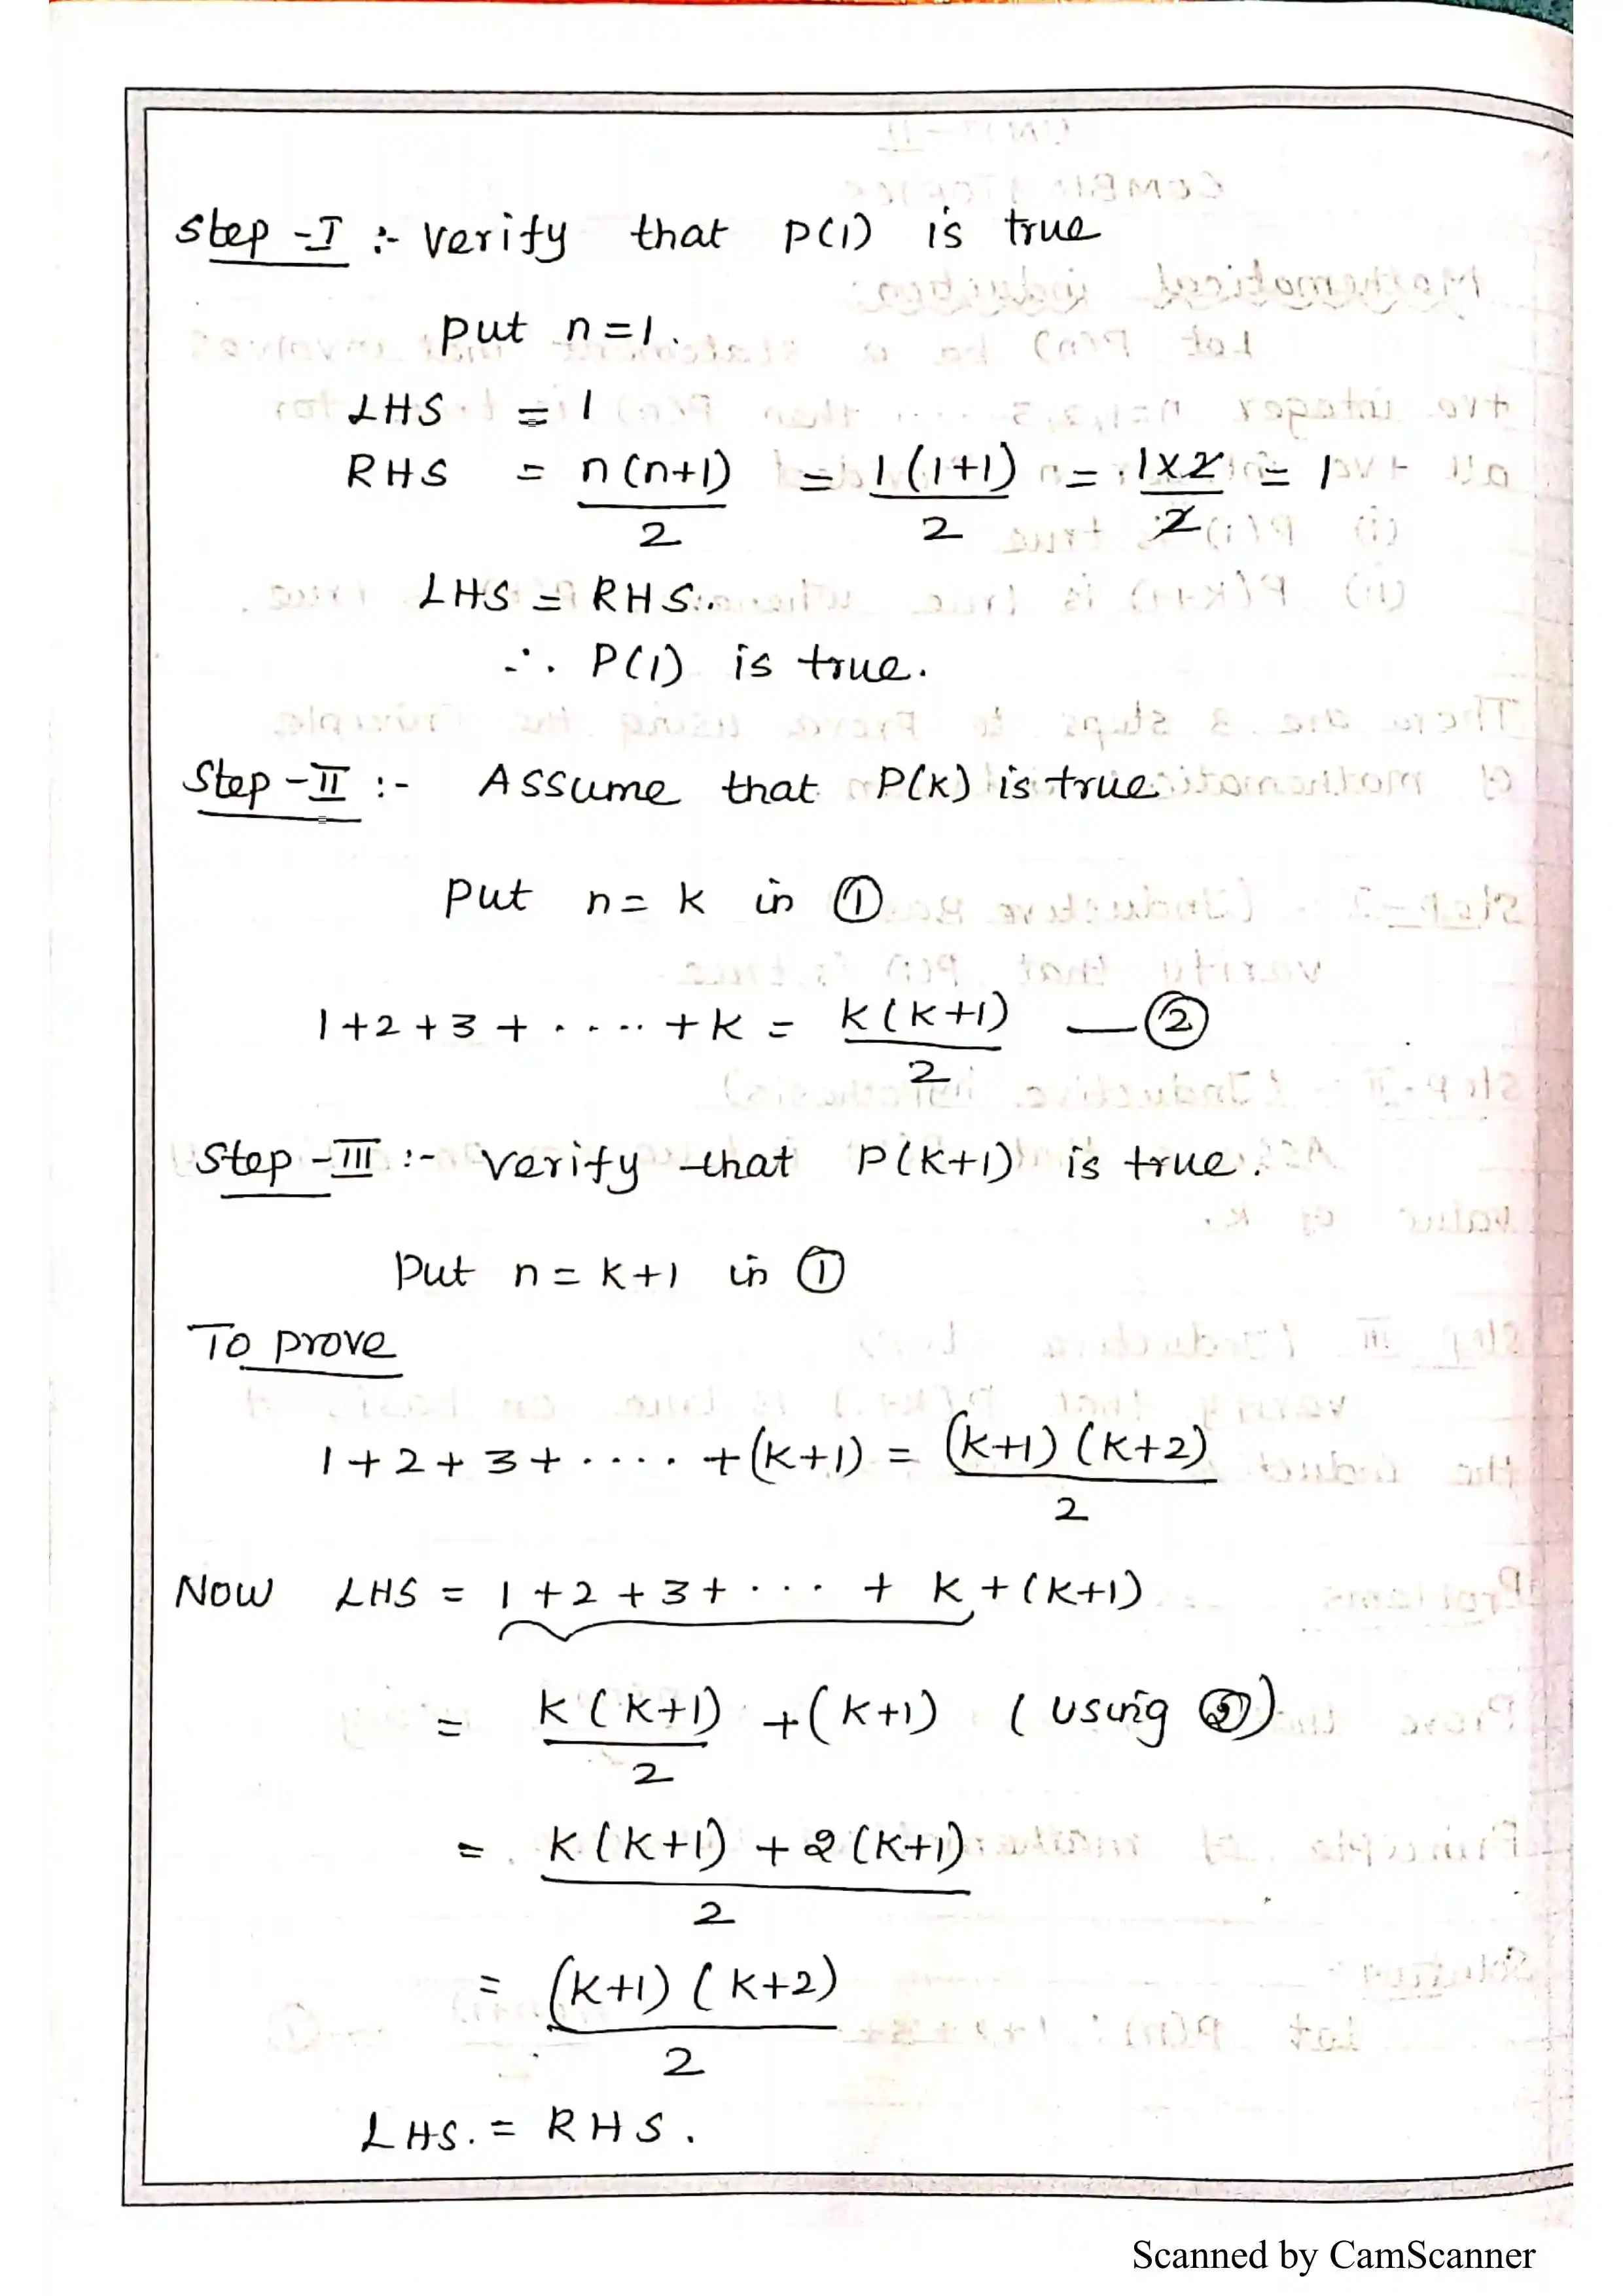 Step-I :- Verify that P(1) is true
Put n=1.
LHS = 1
RHS = n(n+1)/2 = 1(1+1)/2 = 1×2/2 = 1
LHS = RHS.
∴ P(1) is true.
Step-II :- Assume that P(K) is true
Put n = K in ①
1+2+3+.....+K = K(K+1)/2 —②
Step-III :- Verify that P(K+1) is true.
Put n = K+1 in ①
To prove
1+2+3+.....+(K+1) = (K+1)(K+2)/2
Now LHS = 1+2+3+...+K+(K+1)
= K(K+1)/2 +(K+1) (using ②)
= K(K+1)+2(K+1)/2
= (K+1)(K+2)/2
LHS. = RHS.
Scanned by CamScanner